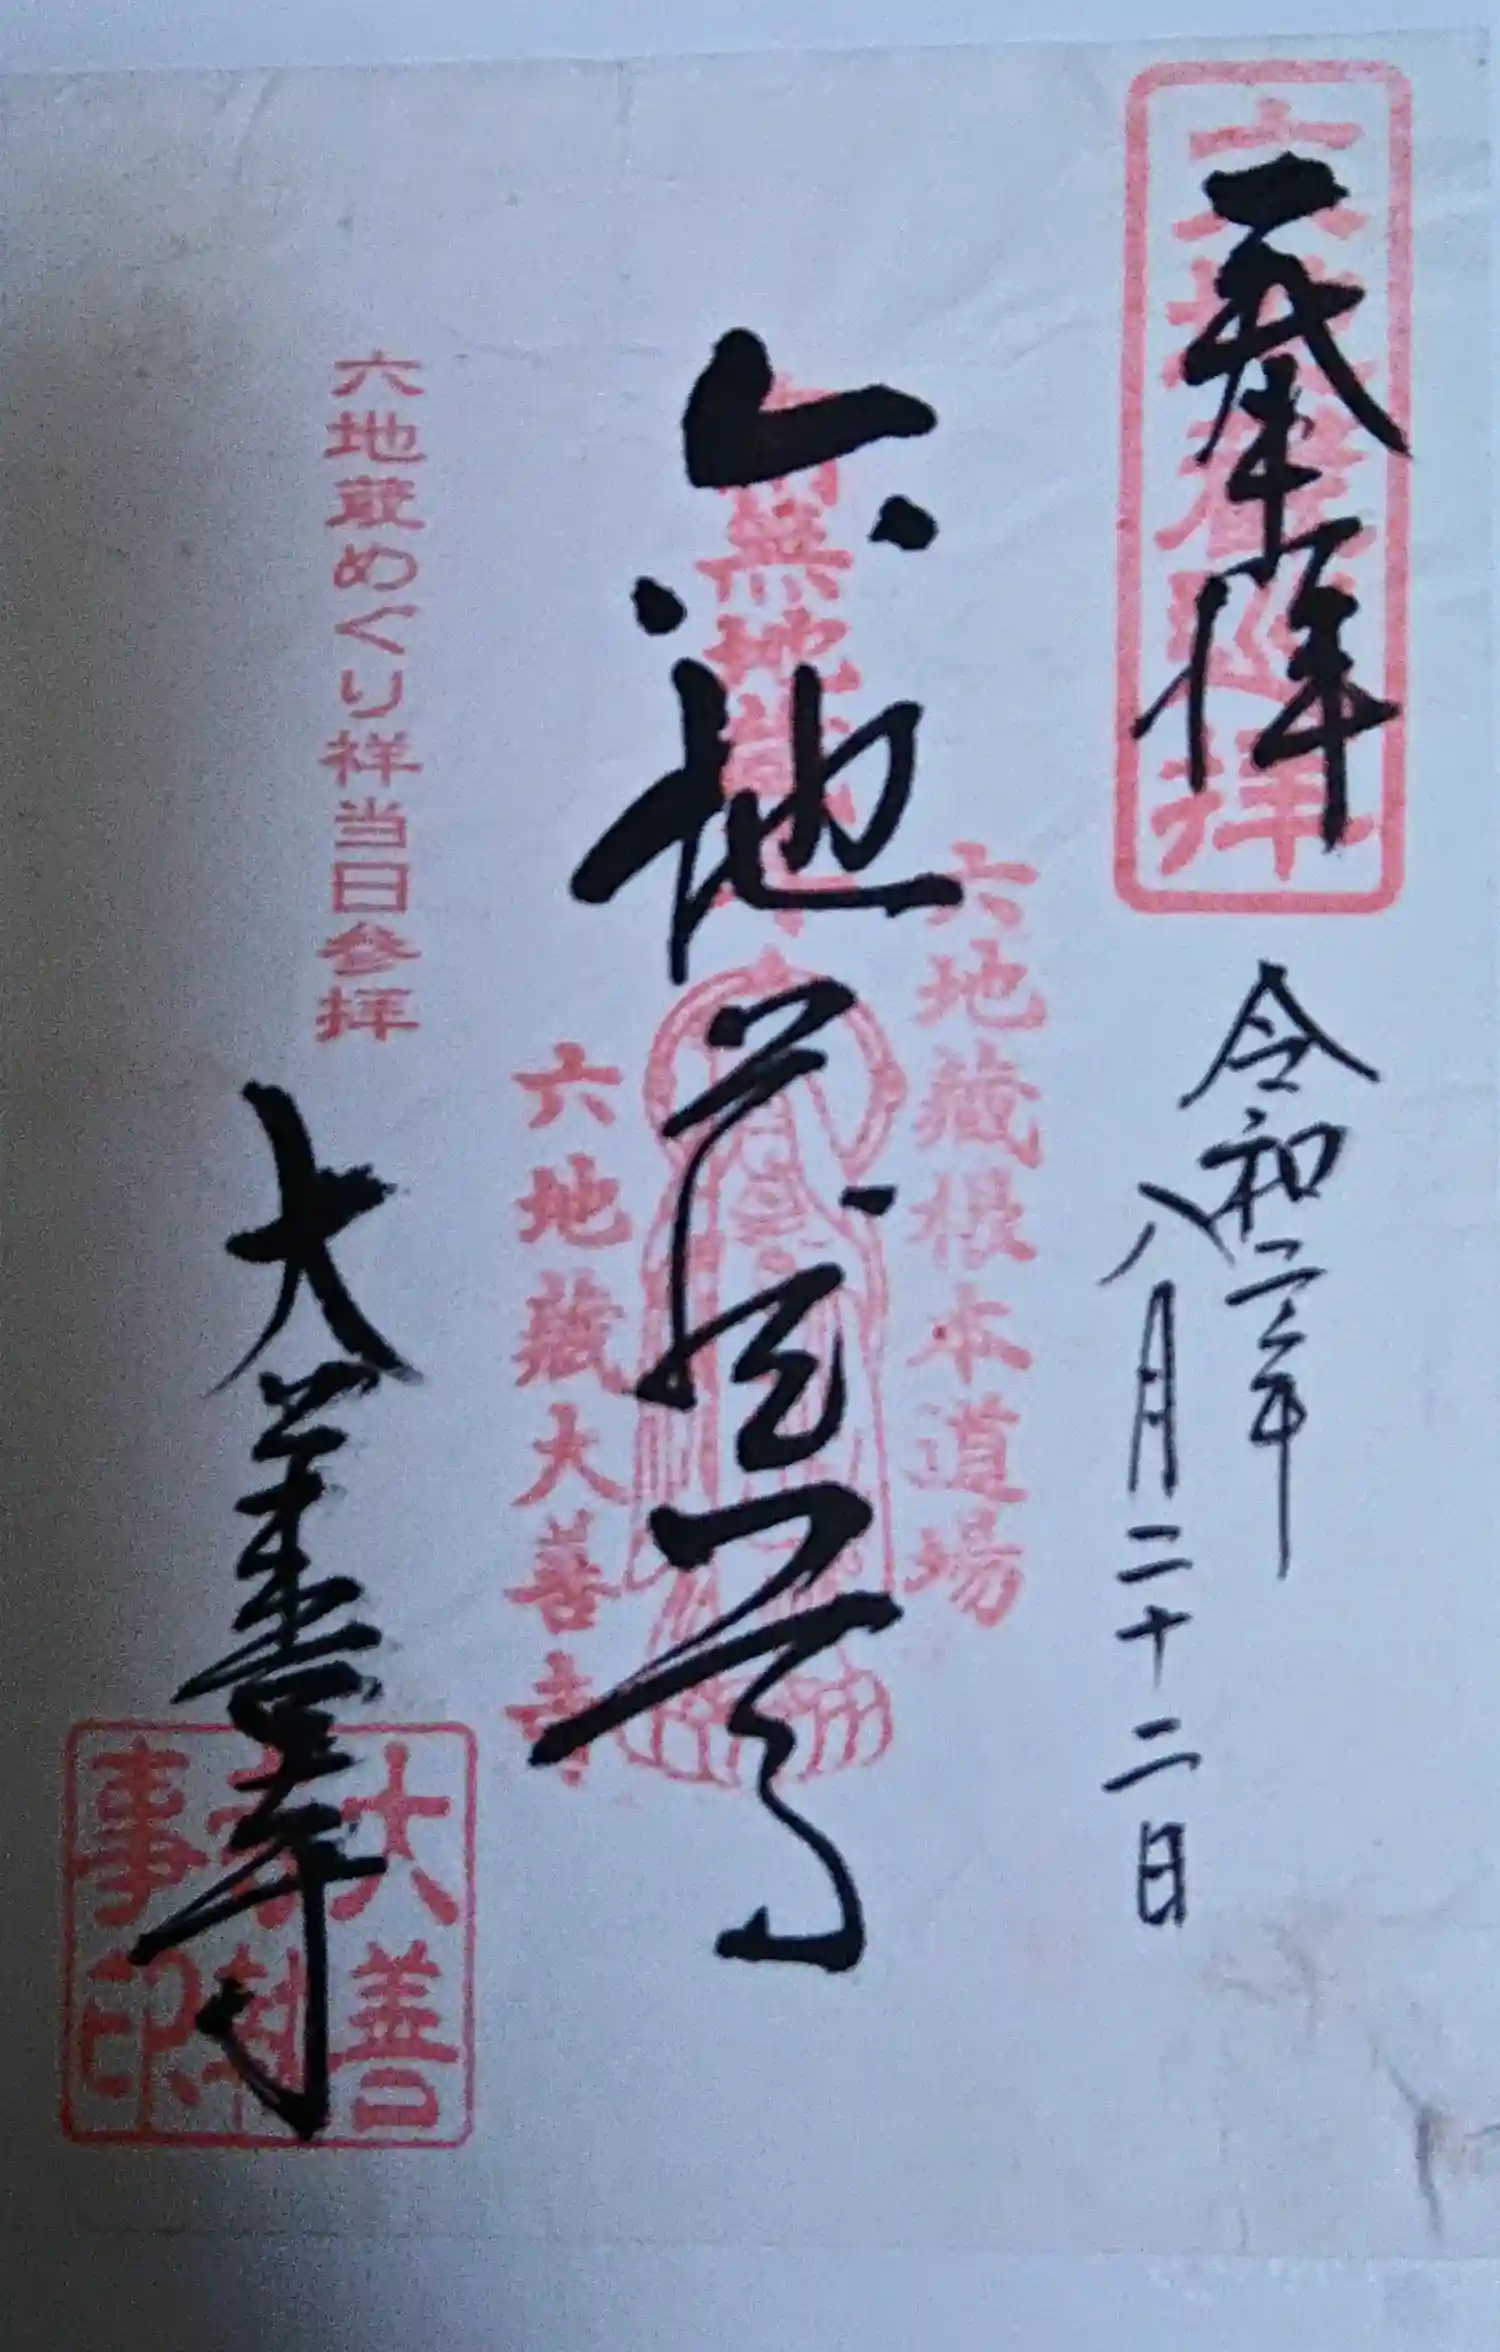 奉拝
六地蔵巡拝
令和二年
八月二十二日
六地蔵根本道場
六地蔵尊
南無地蔵
六地蔵大善寺
六地蔵めぐり祥当日参拝
大善寺
大善
寺
事印